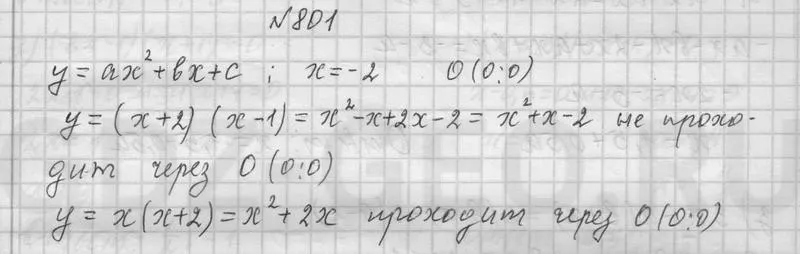 №801
y = ax² + bx + c ; x = -2 O(0;0)
y = (x+2)(x-1) = x² - x + 2x - 2 = x² + x - 2 не прохо-
дит через O(0;0)
y = x(x+2) = x² + 2x проходит через O(0;0)